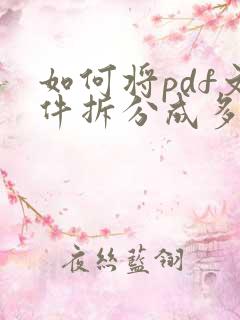 如何将pdf文
件拆分成多
夜丝藍翎